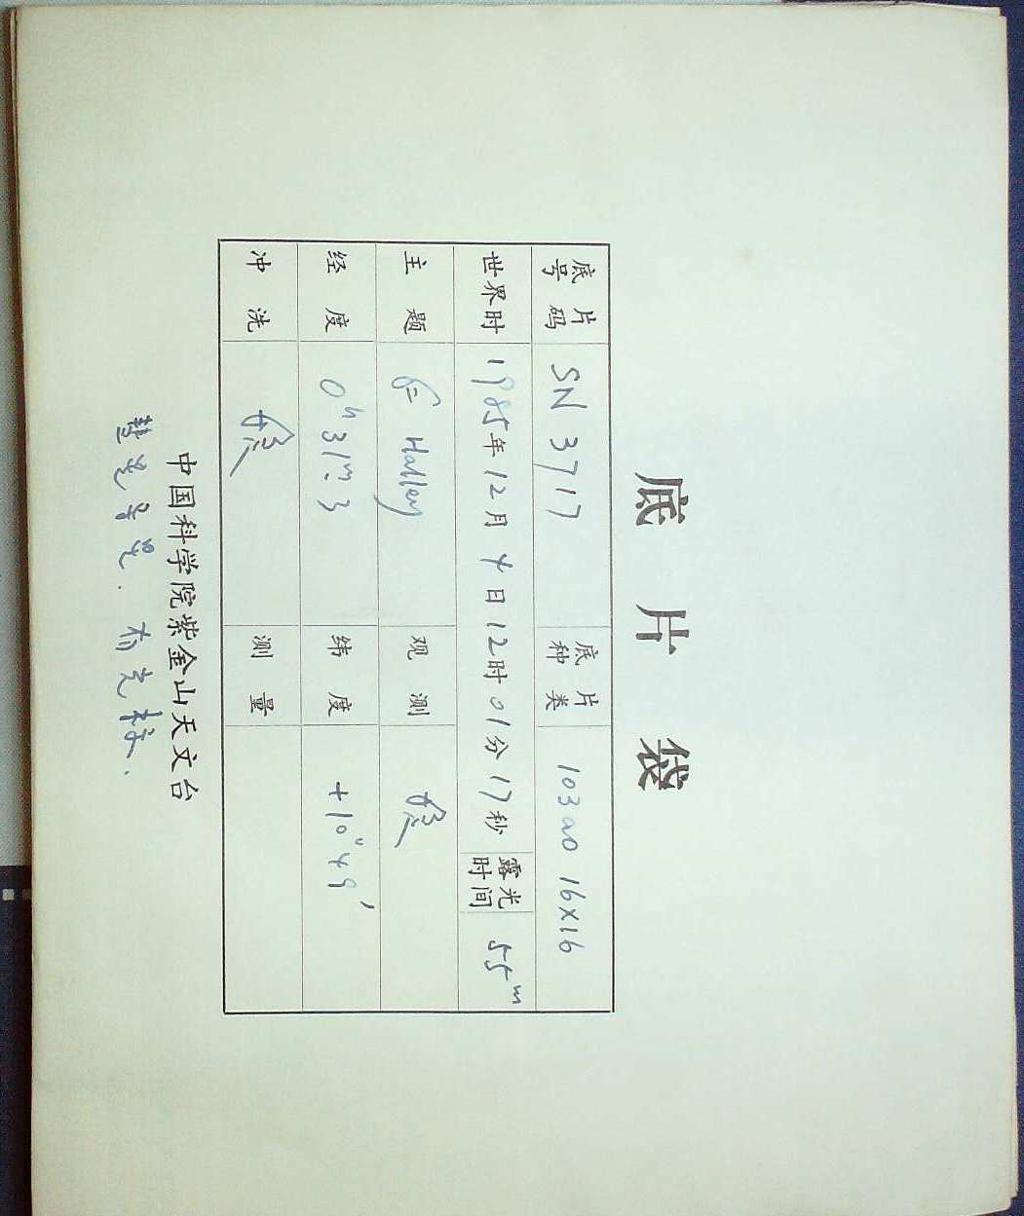 底片袋
底片号码 SN 3717 底片种类 103aO 16×16
世界时 1985年12月4日12时01分17秒 露光时间 55m
主题 Halley 观测
经度 0h 31m.3 纬度 +10°49′
冲洗 测量
中国科学院紫金山天文台
彗星导星.